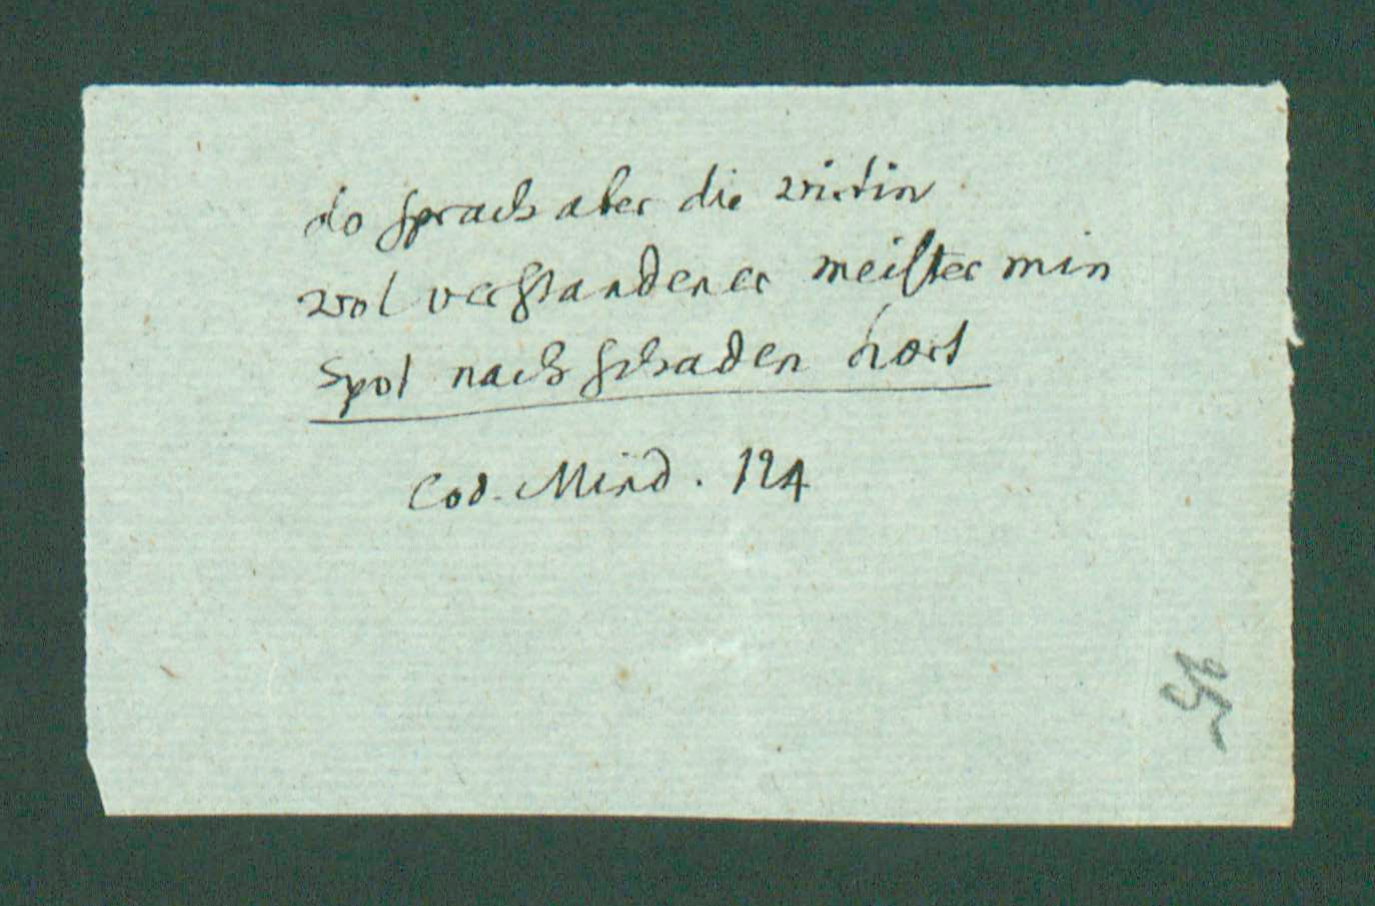 do sprach aber die wirtin
wol verstandener meister min
Spot nach schaden hort
Cod. Mind. 124